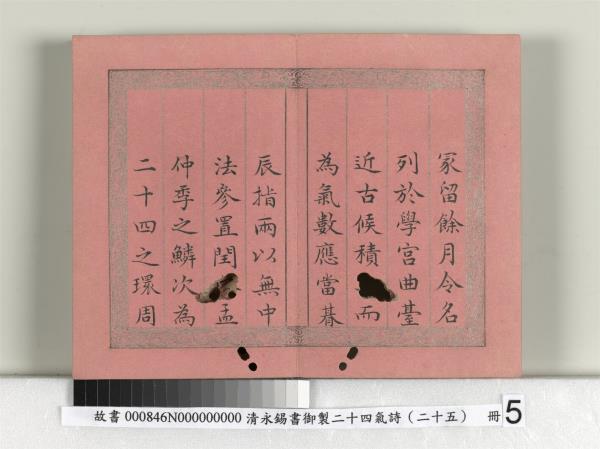 冡留餘月令名
列於學宮曲臺
近古候積而
為氣數應當朞
辰指兩以無中
法參置閏孟
仲季之鱗次為
二十四之環周
故書 000846N000000000 清永錫書御製二十四氣詩(二十五) 冊 5